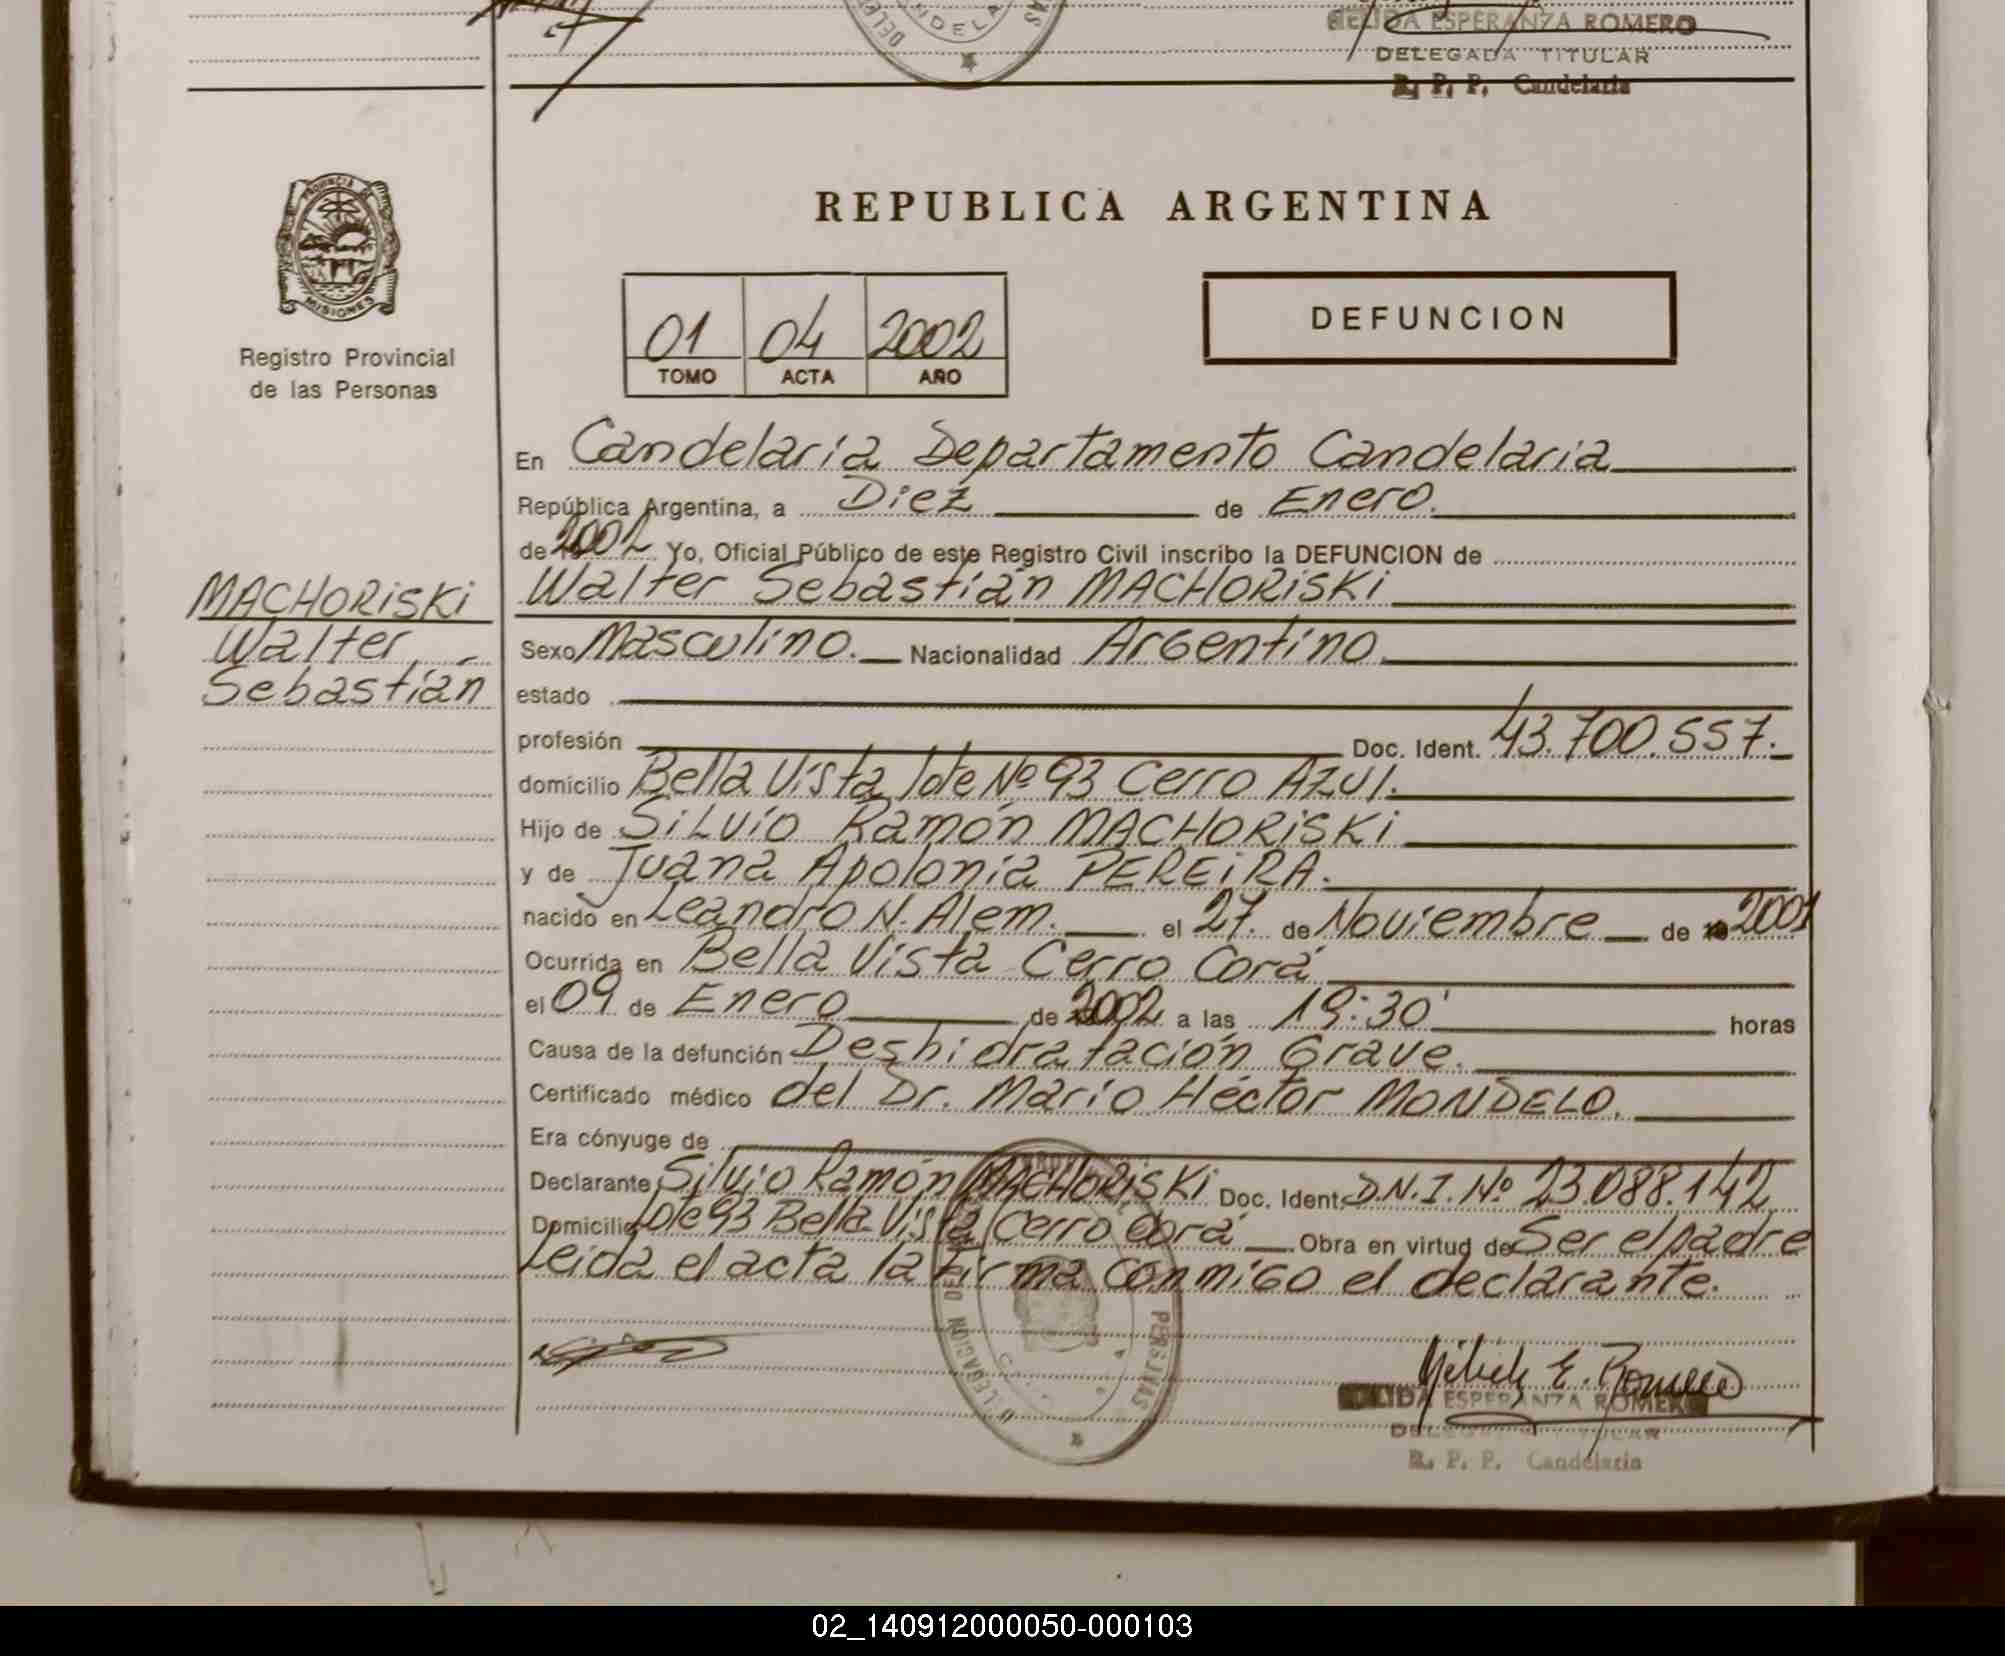 DELEGADA TITULAR
R. P. P. Candelaria
PROVINCIA DE
MISIONES
Registro Provincial
de las Personas
REPUBLICA ARGENTINA
01 04 2002
TOMO ACTA AÑO
DEFUNCION
En Candelaria Departamento Candelaria
República Argentina, a Diez de Enero.
de 2002 Yo, Oficial Público de este Registro Civil inscribo la DEFUNCION de
MACHORiSKi
Walter
Sebastián
Walter Sebastián MACHORiSKi
Sexo Masculino. Nacionalidad Argentino.
estado
profesión Doc. Ident. 43.700.557.
domicilio Bella Vista lote Nº 93 Cerro Azul.
Hijo de SiLvio Ramón MACHORiSKi
y de Juana Apolonia PEREiRA.
nacido en Leandro N. Alem. el 27. de Noviembre de 2001
Ocurrida en Bella Vista Cerro Corá
el 09 de Enero de 2002 a las 19:30' horas
Causa de la defunción Deshidratación Grave.
Certificado médico del Dr. Mario Héctor MONDELO.
Era cónyuge de
Declarante Silvio Ramón MACHORiSKi Doc. Ident. D.N.I. Nº 23.088.142
Domicilio lote 93 Bella Vista Cerro Corá Obra en virtud de Ser el padre
Leida el acta la firma conmigo el declarante.
E. Romero
ESPERANZA ROMERO
R. P. P. Candelaria
02_140912000050-000103